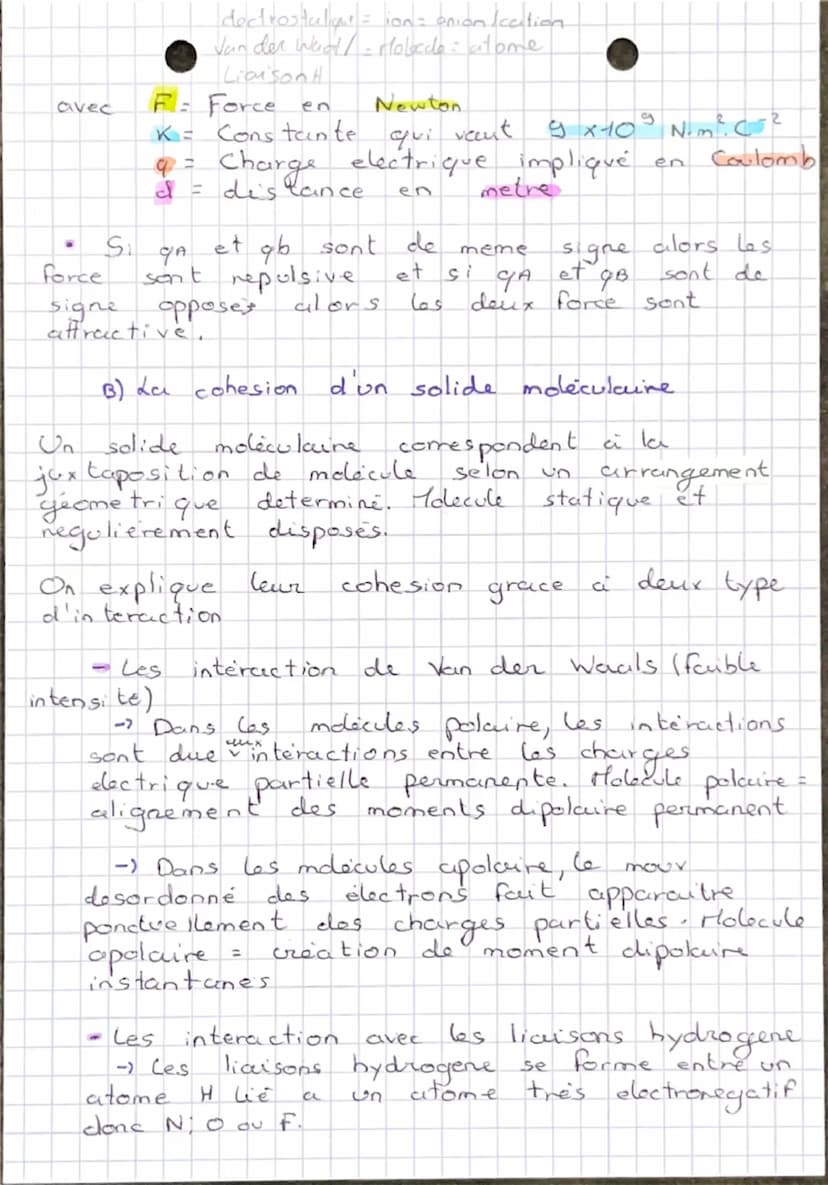 electrostatique = ion = anion/cation
Van der Waal/ = Molecule = atome
Liaison H
avec F = Force en Newton
K = Constante qui vaut 9 x 10⁹ N.m².C⁻²
q = Charge electrique impliqué en Coulomb
d = distance en metre
• Si qA et qb sont de meme signe alors les
force sont repulsive et si qA et qB sont de
signe opposés alors les deux force sont
attractive.
B) La cohesion d'un solide moléculaire
Un solide moléculaire correspondent à la
juxtaposition de molécule selon un arrangement
géometrique determiné. Molecule statique et
regulièrement disposés.
On explique leur cohesion grace à deux type
d'interaction
- Les intéraction de Van der Waals (faible
intensite)
-> Dans les molécules polaire, les intéractions
sont due aux intéractions entre les charges
electrique partielle permanente. Molécule polaire =
alignement des moments dipolaire permanent
-> Dans les molécules apolaire, le mouv
desordonné des électrons fait apparaitre
ponctuellement des charges partielles. Molecule
apolaire = création de moment dipolaire
instantanes
- Les interaction avec les liaisons hydrogene
-> Les liaisons hydrogene se forme entre un
atome H lié a un atome très electronegatif
donc N; O ou F.